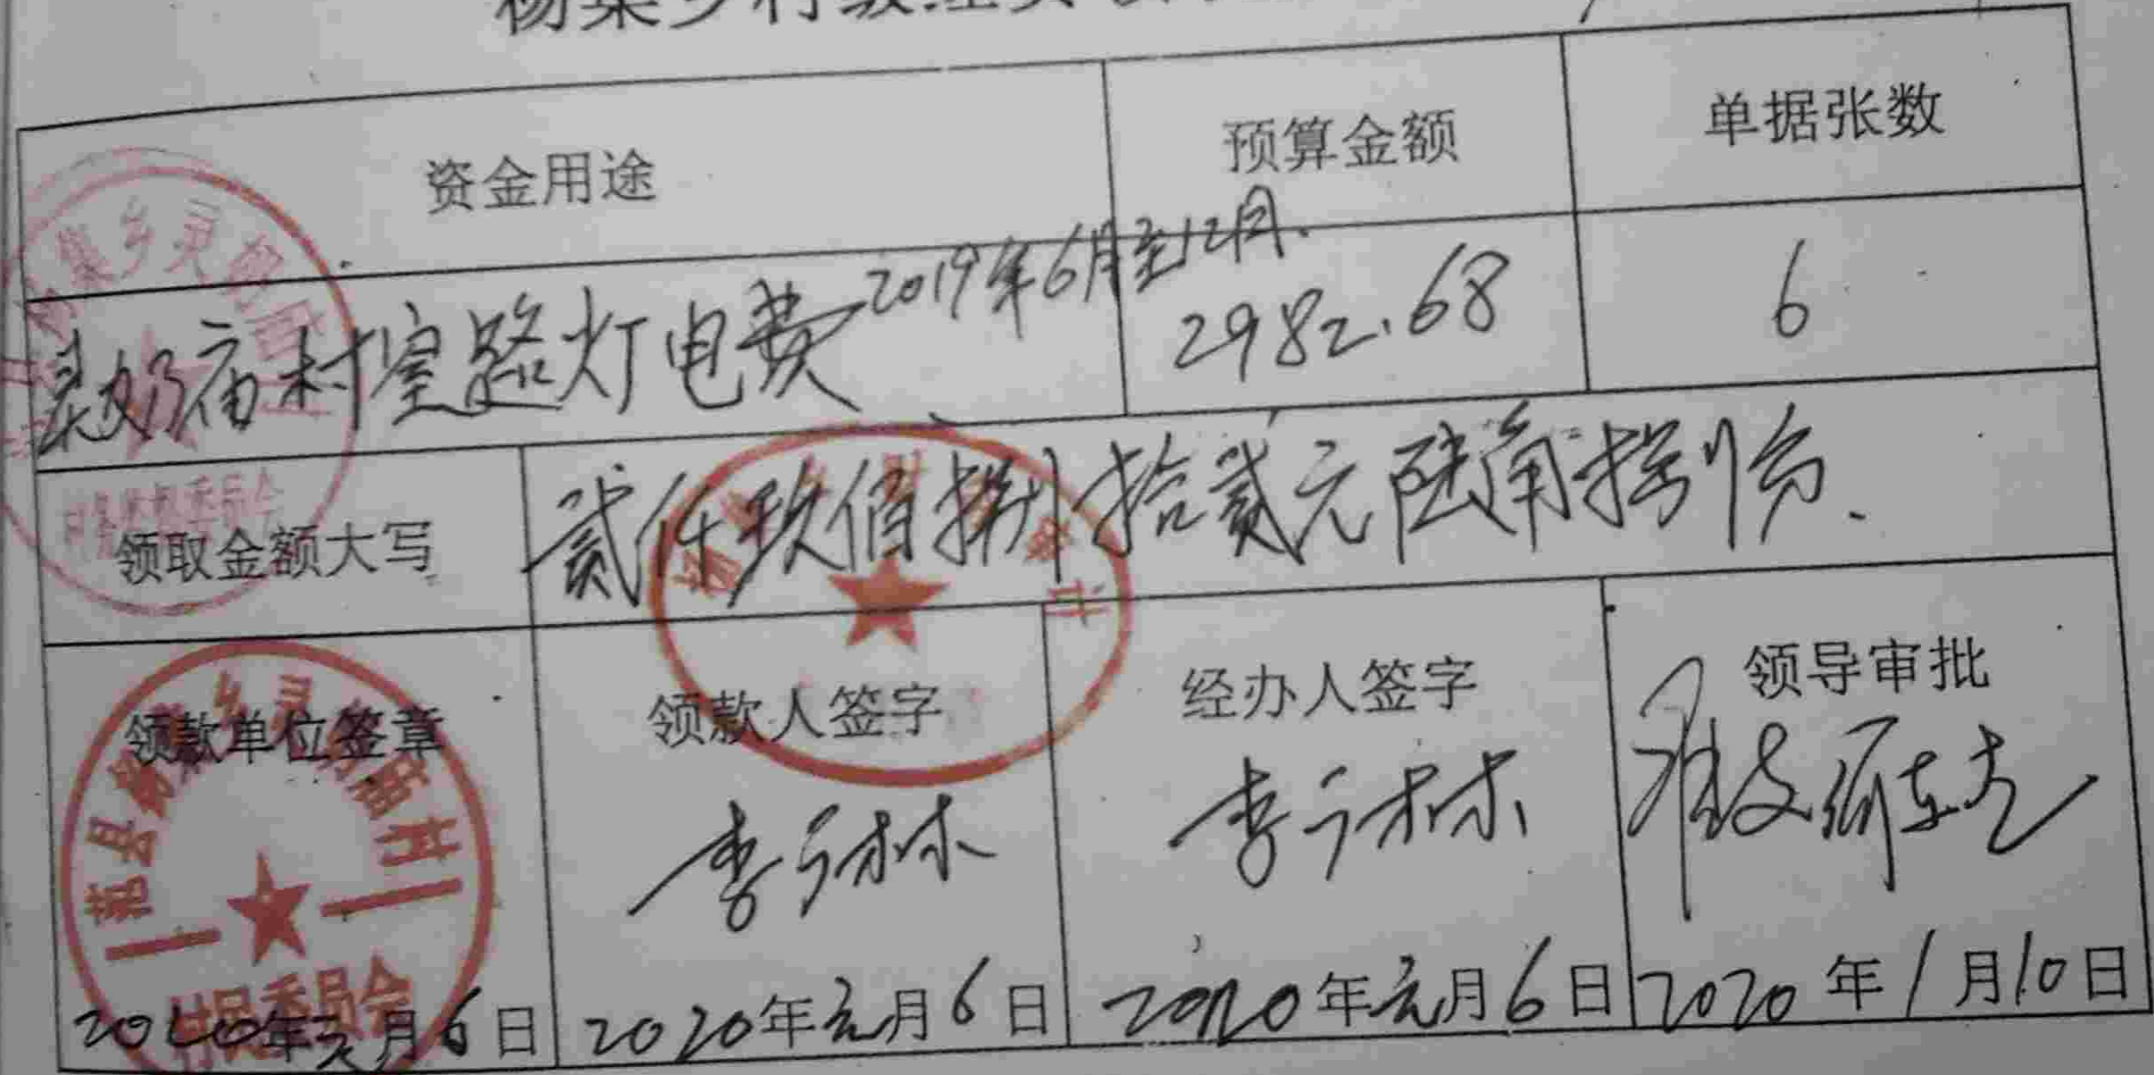 杨集乡村级经费
资金用途 预算金额 单据张数
灵奶庙村室路灯电费2019年6月至12月. 2982.68 6
领取金额大写 贰仟玖佰捌拾贰元陆角捌分.
领款单位签章 领款人签字 经办人签字 领导审批
李 林 李 林
2020年元月6日 2020年元月6日 2020年元月6日 2020年1月10日
集乡灵
村民委员会